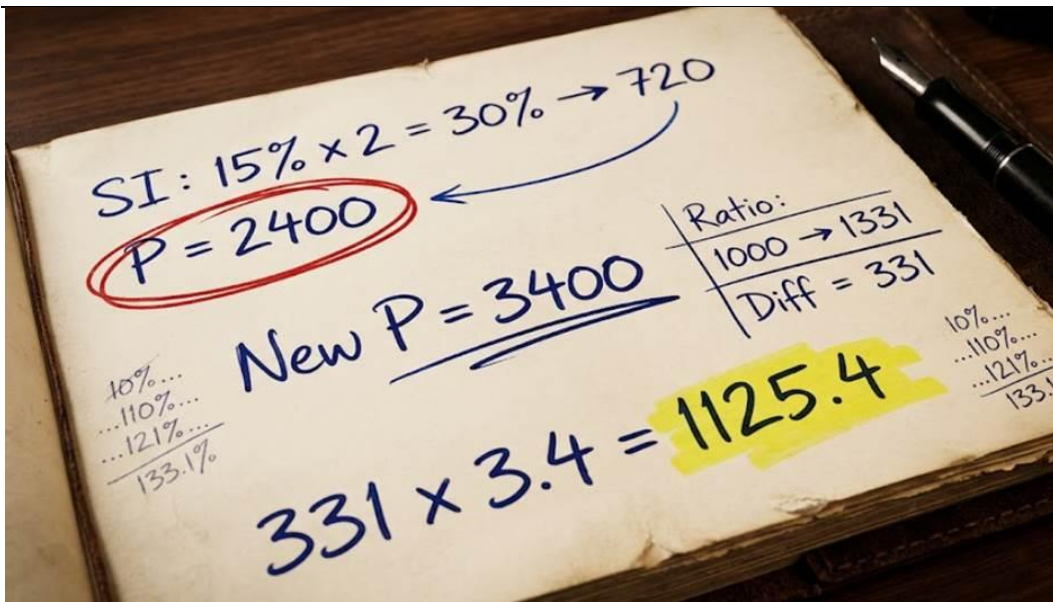 SI: 15% × 2 = 30% → 720
P = 2400
Ratio:
1000 → 1331
Diff = 331
New P = 3400
10%...
...110%...
...121%...
133.1%
10%...
...110%...
...121%...
133.1
331 × 3.4 = 1125.4